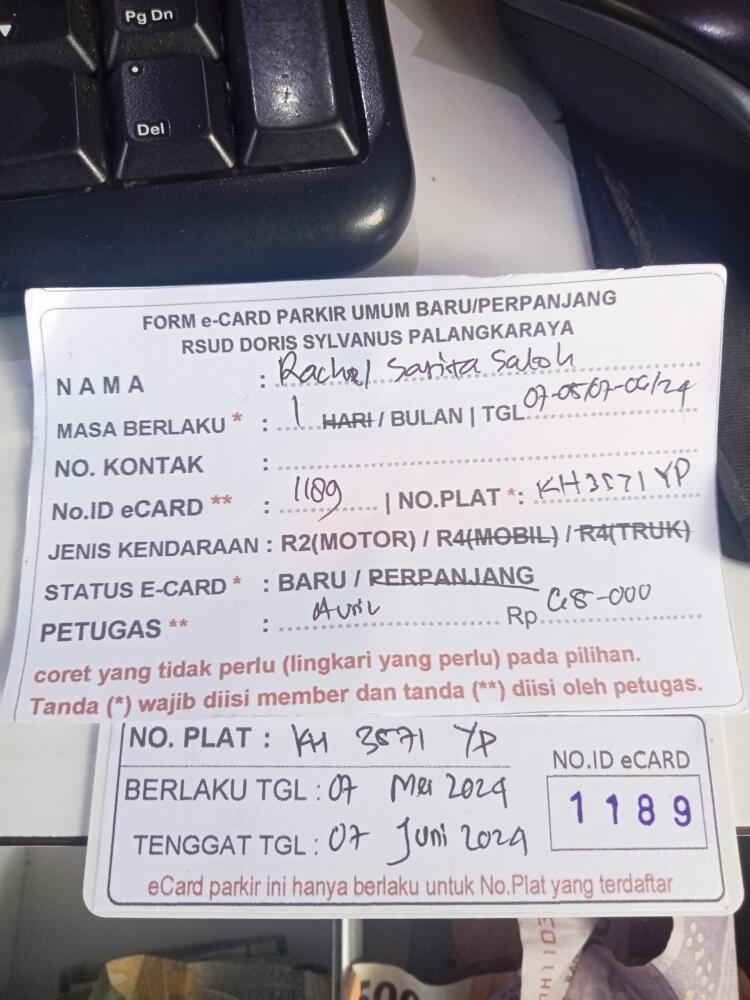 Pg Dn
Del
FORM e-CARD PARKIR UMUM BARU/PERPANJANG
RSUD DORIS SYLVANUS PALANGKARAYA
NAMA : Rachel Sarita Saloh
MASA BERLAKU * : 1 HARI / BULAN | TGL 07-05/07-06/24
NO. KONTAK :
No.ID eCARD ** : 1189 | NO.PLAT *: KH 3571 YP
JENIS KENDARAAN : R2(MOTOR) / R4(MOBIL) / R4(TRUK)
STATUS E-CARD * : BARU / PERPANJANG
PETUGAS ** : Rp 68-000
coret yang tidak perlu (lingkari yang perlu) pada pilihan.
Tanda (*) wajib diisi member dan tanda (**) diisi oleh petugas.
NO. PLAT : KH 3571 YP
BERLAKU TGL : 07 Mei 2024
TENGGAT TGL : 07 Juni 2024
NO.ID eCARD
1189
eCard parkir ini hanya berlaku untuk No.Plat yang terdaftar